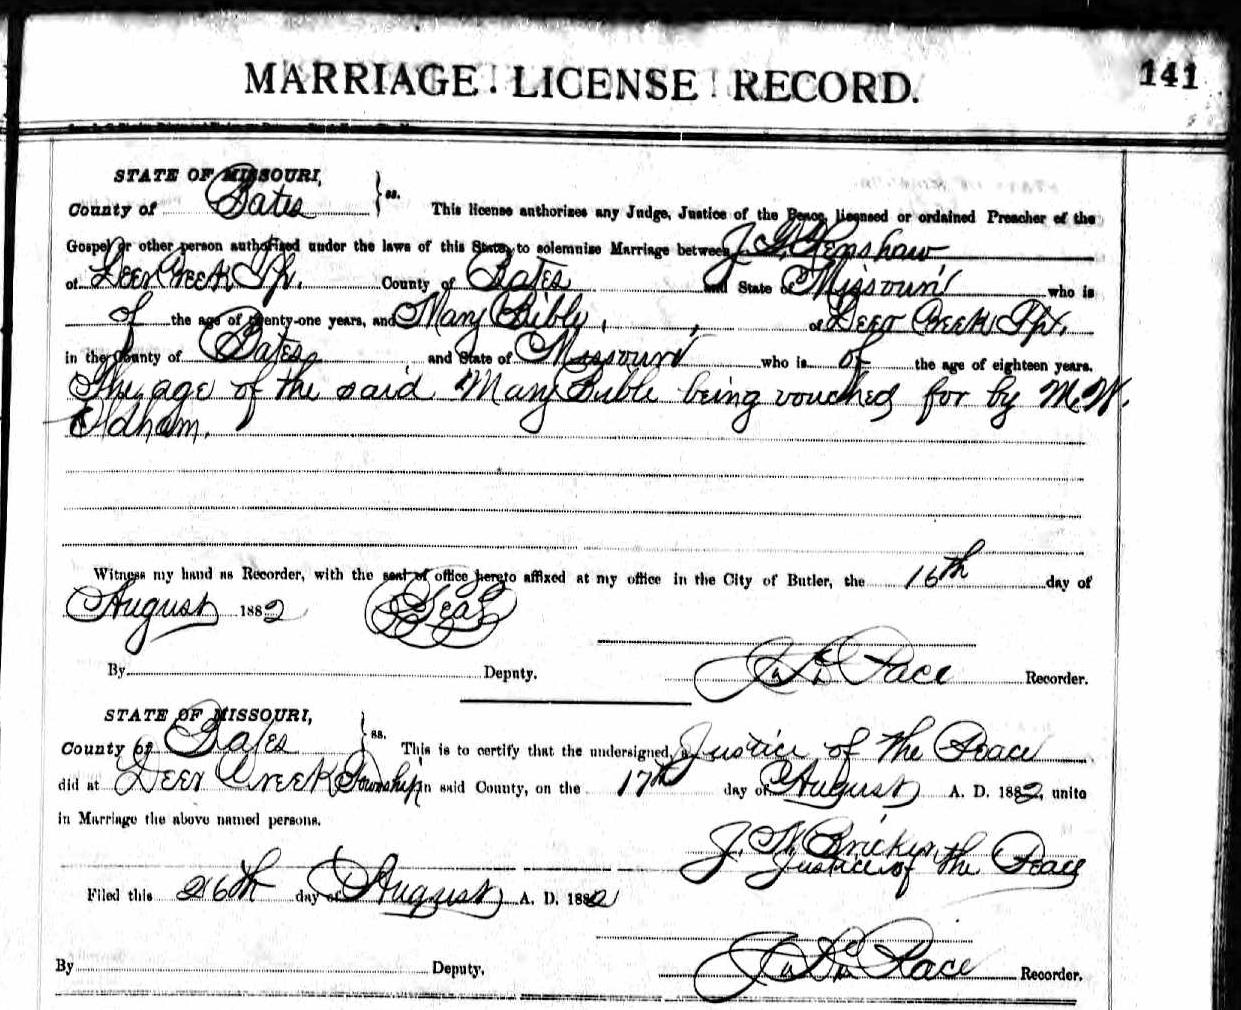 MARRIAGE LICENSE RECORD. 141
STATE OF MISSOURI,
County of Bates ss. This license authorizes any Judge, Justice of the Peace, licensed or ordained Preacher of the
Gospel or other person authorized under the laws of this State, to solemnize Marriage between J. Henshaw
of Deer Creek Tp. County of Bates and State of Missouri who is
of the age of twenty-one years, and Mary Bible, of Deer Creek Tp.
in the County of Bates, and State of Missouri who is of the age of eighteen years.
The age of the said Mary Bible being vouched for by M. W.
Oldham.
Witness my hand as Recorder, with the seal of office hereto affixed at my office in the City of Butler, the 16th day of
August 1882 Seal
By Deputy. Pace Recorder.
STATE OF MISSOURI,
County of Bates ss. This is to certify that the undersigned, a Justice of the Peace
did at Deer Creek Township in said County, on the 17th day of August A. D. 1882, unite
in Marriage the above named persons.
J. Bricker,
Justice of the Peace
Filed this 26th day of August A. D. 1882
By Deputy. Pace Recorder.